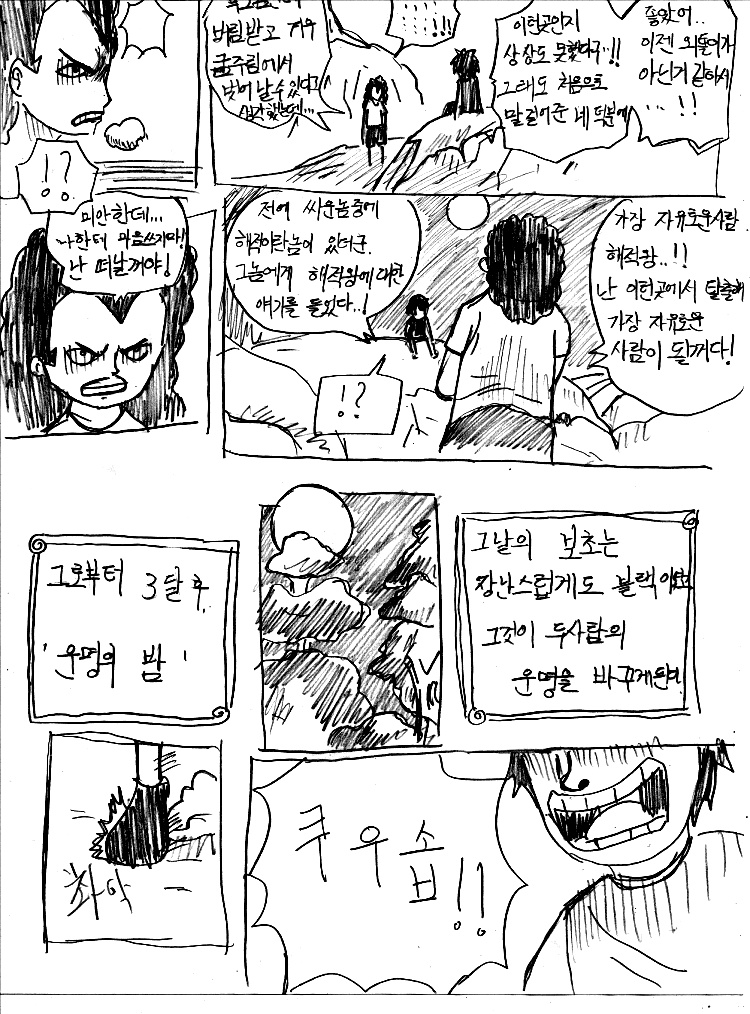 버림받고 겨우
굶주림에서
벗어 날수 있다고
생각했는데...
이런곳인지
상상도 못했다구..!!
그래도 처음으로
말 걸어준 네 덕분에
즐거웠어..
이젠 외톨이가
아닌거 같아서
...!!
!?
미안한데...
나한테 마음쓰지마!
난 떠날꺼야!
전에 싸운놈중에
해적이란놈이 있더군.
그놈에게 해적왕에 대한
얘기를 들었다..!
!?
가장 자유로운사람
해적왕..!!
난 이런곳에서 탈출해
가장 자유로운
사람이 될꺼다!
그로부터 3달후,
'운명의 밤'
그날의 보초는
장난스럽게도 블랙
그것이 두사람의
운명을 바꾸게된다.
촤악
쿠우솝!!